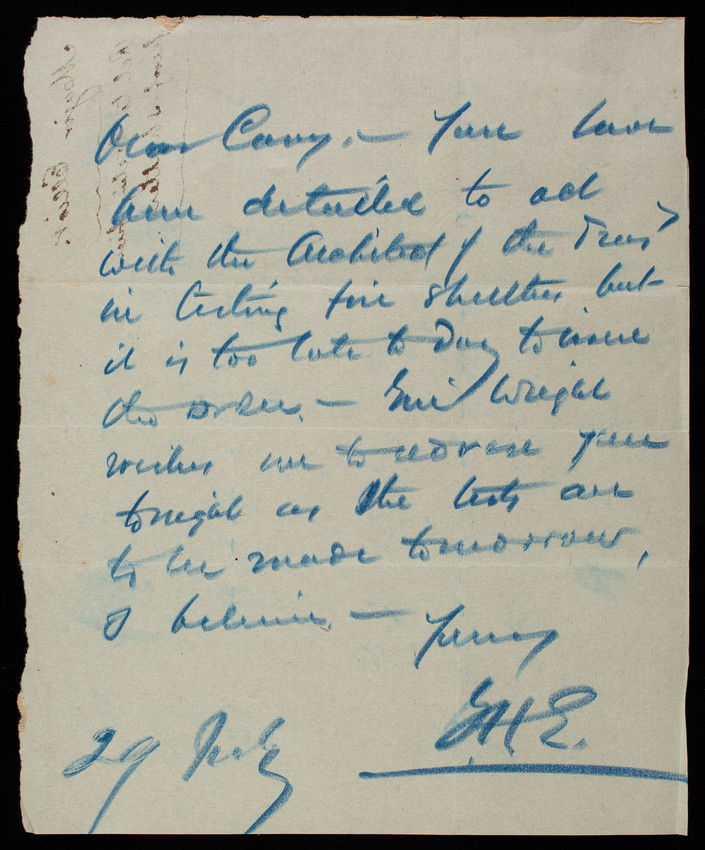 Dear Casey. — You have
been detailed to act
with the Architect of the Treasy
in testing fire shutters but
it is too late to day to issue
the order. — Genl Wright
wishes me to advise you
tonight as the tests are
to be made tomorrow,
I believe. — Yours
29 July